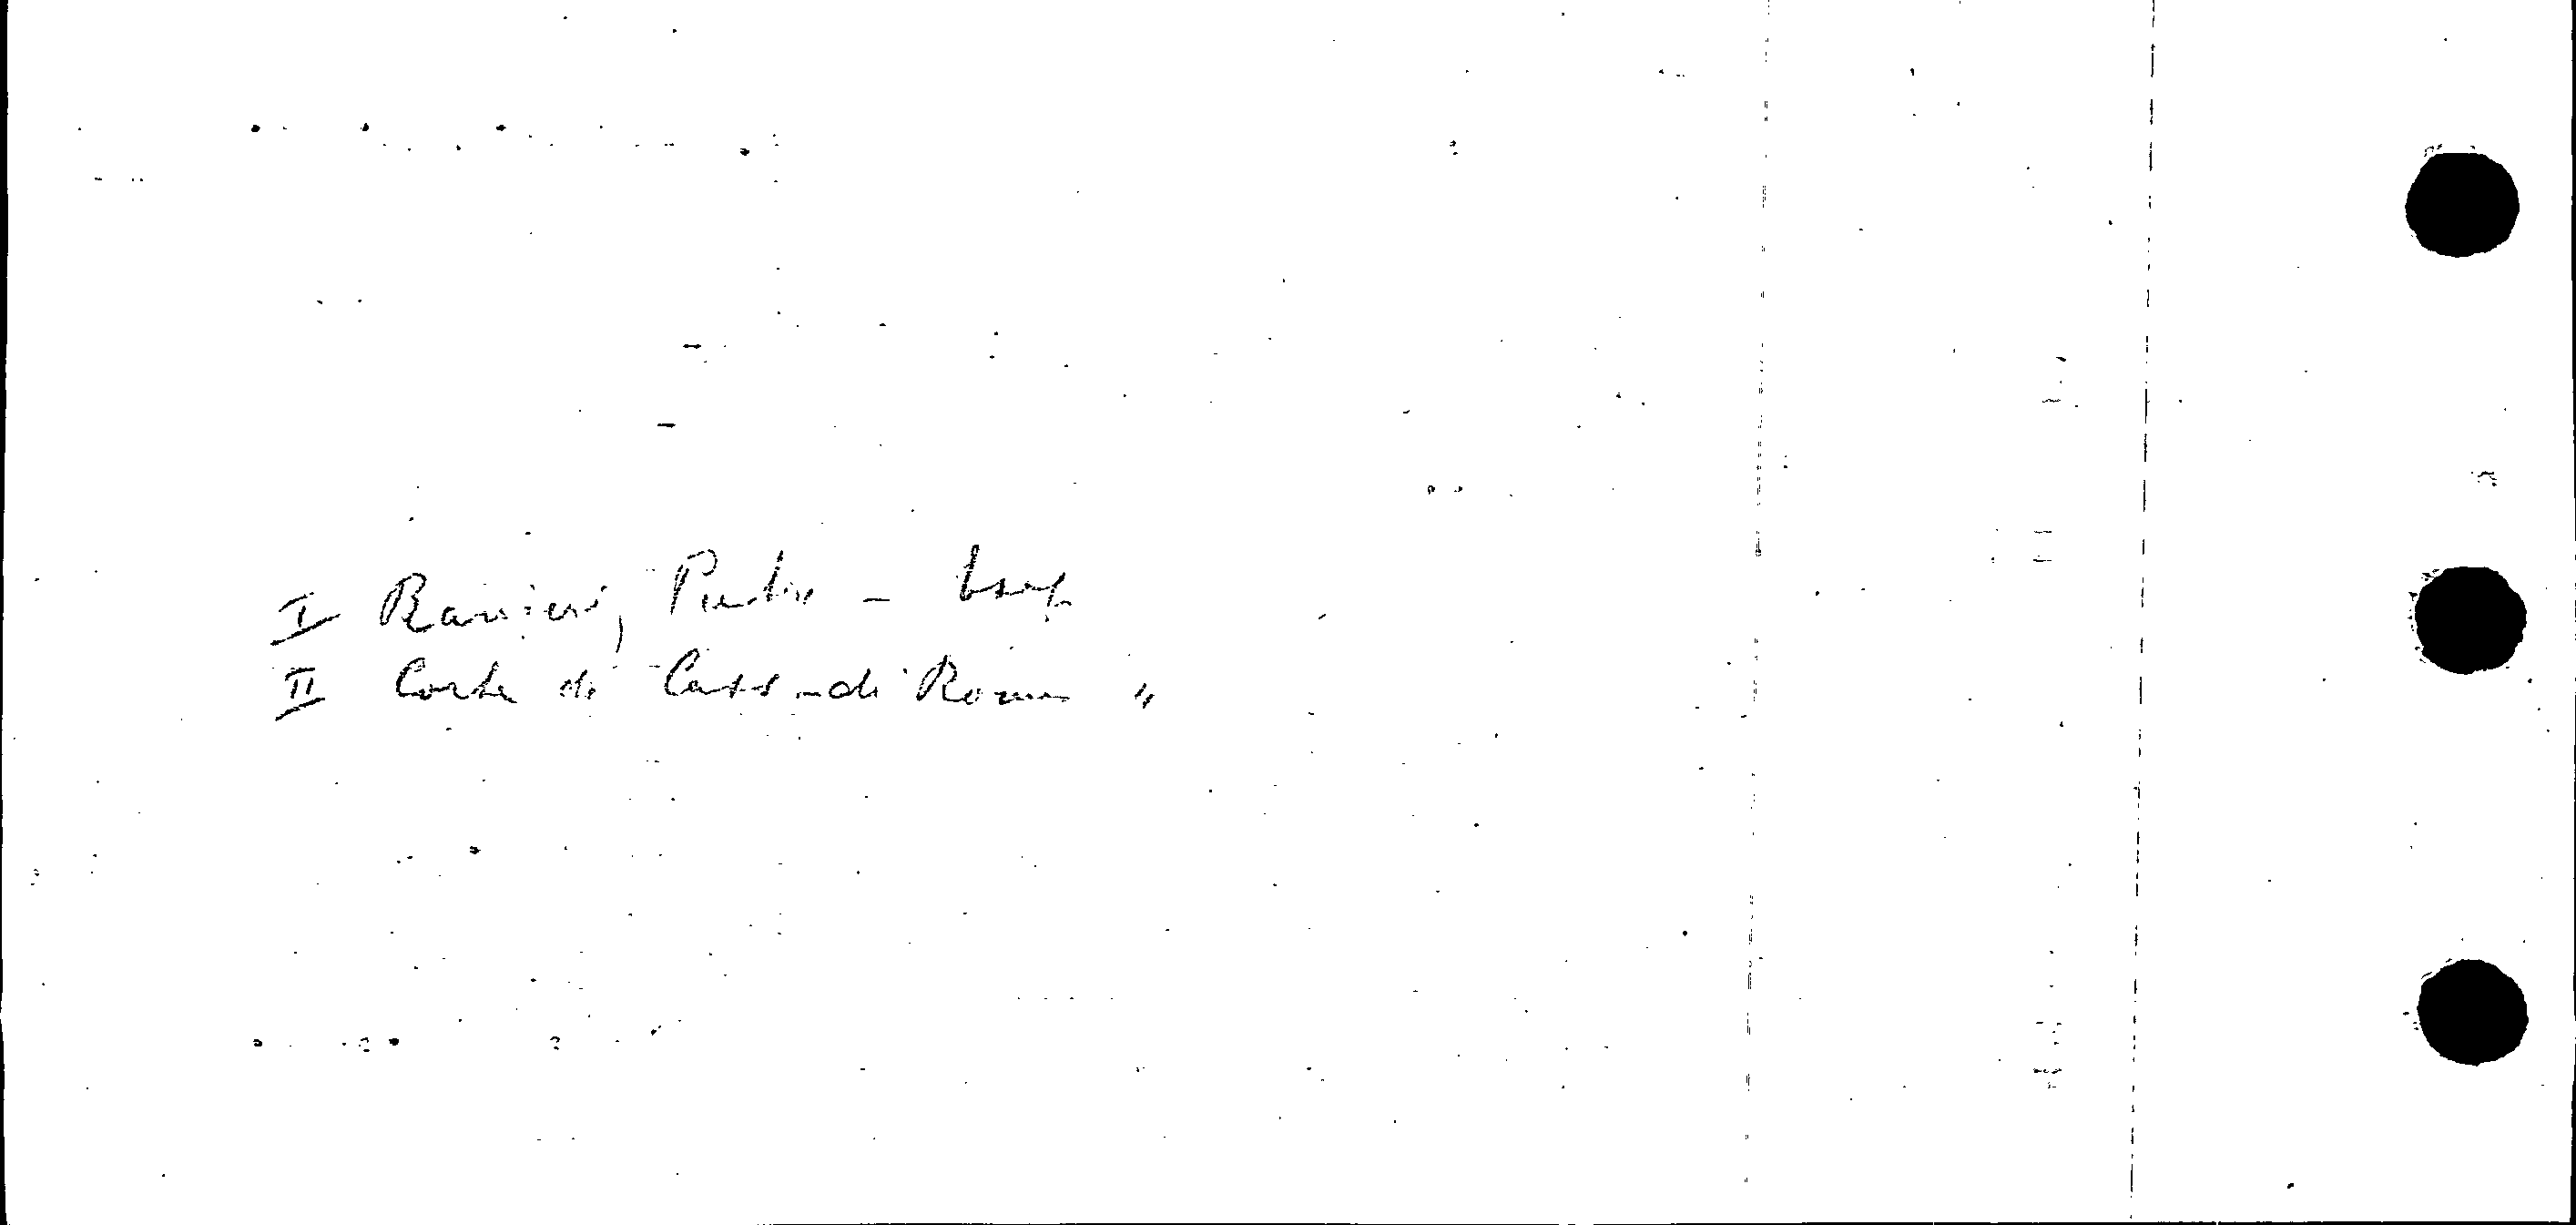 I Ranieri, Pietro -
II Corte di Cass. di Roma "